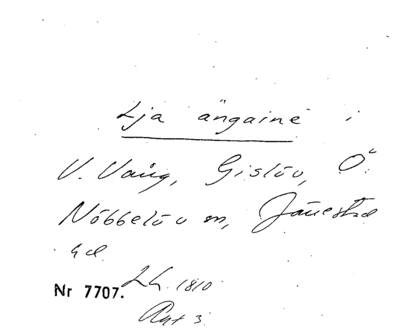 Lja ängaine i
V. Vång, Gislöv, Ö.
Nöbbelöv m, Järrestad
hd
Nr 7707. Lh. 1810
Akt 3